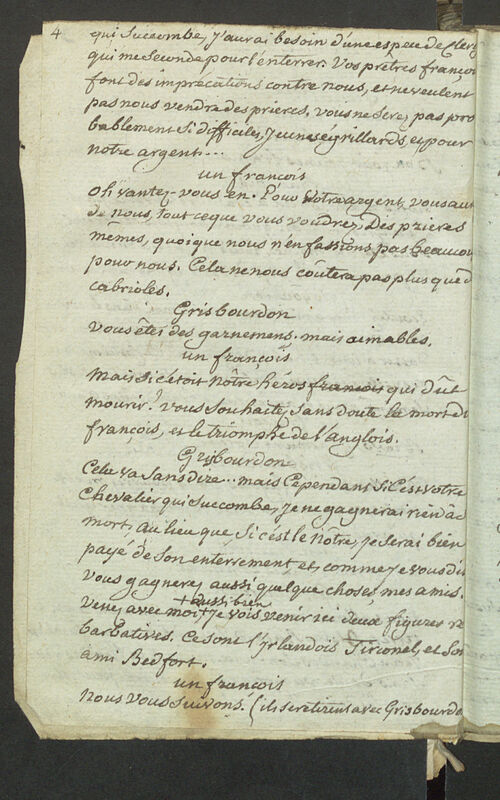 4
qui succombe, j'aurai besoin d'une espece de Clerg
qui me seconde pour l'enterrer. Vos prêtres françoi
font des imprécations contre nous, et ne veulent
pas nous vendre des prieres, vous ne serez pas pro
bablement si difficiles, jeunes égrillards, et pour
notre argent...
un françois
oh! vantez-vous en. Pour votre argent, vous aur
de nous, tout ce que vous voudrez, Des prieres
mêmes, quoique nous n'en fassions pas beaucou
pour nous. Cela ne nous coûtera pas plus que d
cabrioles.
Grisbourdon
vous êtes des garnemens. mais aimables.
un françois
mais si c'étoit nôtre héros francois qui dût
mourir? vous souhaitez sans doute la mort du
françois, et le triomphe de l'anglois.
Grisbourdon
Cela va sans dire... mais Cependant si C'est votre
Chevalier qui succombe, je ne gagnerai rien à sa
mort, au lieu que, si c'est le nôtre, je serai bien
payé de son enterrement, et comme je vous dis
vous gagnerez aussi quelque chose, mes amis.
+ aussi bien
venez avec moi + je vois venir ici deux figures re
barbatives. Ce sont l'Irlandois Tirconel, et son
ami Bedfort.
un françois
nous vous suivons. (ils se retirent avec Grisbourdo